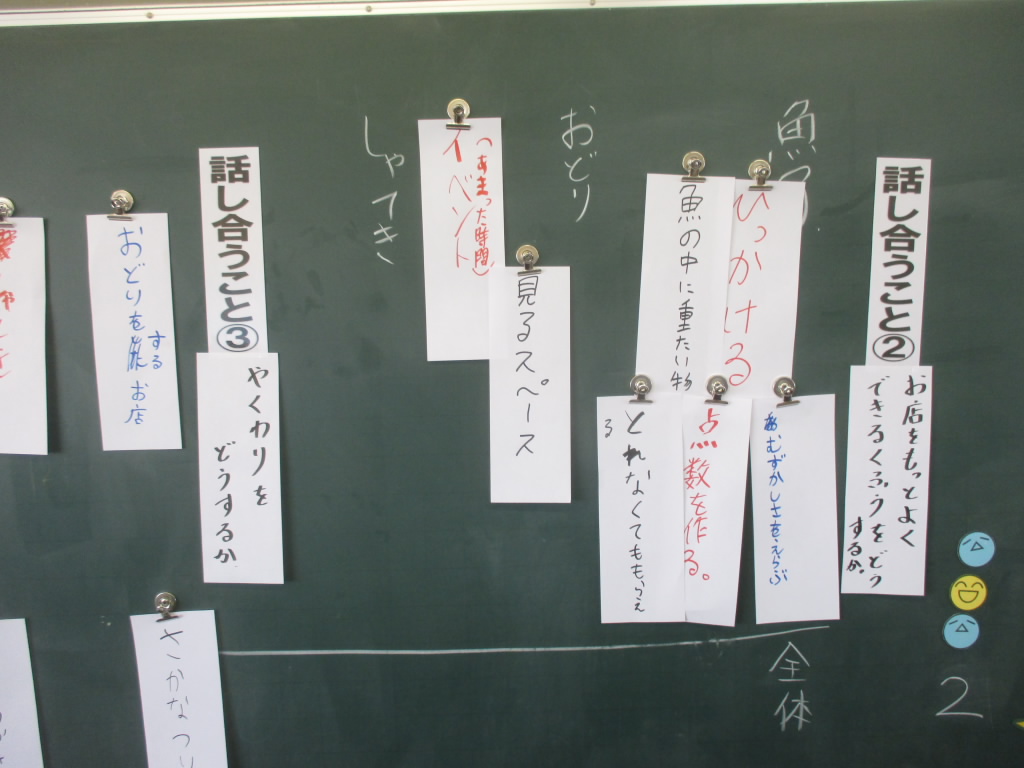 話し合うこと②
お店をもっとよく
できるくふうをどう
するか。
魚つり
ひっかける
魚の中に重たい物
むずかしさをえらぶ
点数を作る。
とれなくてももらえ
る
おどり
(あまった時間)
イベント
見るスペース
しゃてき
全体
2
話し合うこと③
やくわりを
どうするか
おどりを
する
お店
さかなつり